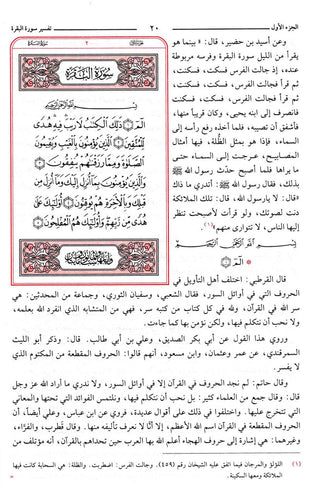 الجزء الأول
٢٠
تفسير سورة البقرة
وعن أسيد بن حضير، قال: «بينما هو
يقرأ من الليل سورة البقرة وفرسه مربوطة
عنده، إذ جالت الفرس فسكت، فسكنت،
ثم قرأ فجالت الفرس، فسكت، فسكنت،
فانصرف إلى ابنه يحيى، وكان قريباً منها،
فأشفق أن تصيبه، فلما أخذه رفع رأسه إلى
السماء، فإذا هو بمثل الظُّلة، فيها أمثال
المصابيح، عرجت إلى السماء حتى
ما يراها فلما أصبح حدّث رسول الله ﷺ
بذلك، فقال رسول الله ﷺ: أتدري ما ذاك
قال: لا، يا رسول الله قال: تلك الملائكة
دنت لصوتك، ولو قرأت لأصبحت تنظر
إليها الناس، لا تتوارى منهم»(١)
سورة البقرة
بسم الله الرحمن الرحيم
الٓمٓ ۝ ذَٰلِكَ ٱلْكِتَٰبُ لَا رَيْبَ فِيهِ هُدًى
لِّلْمُتَّقِينَ ۝ ٱلَّذِينَ يُؤْمِنُونَ بِٱلْغَيْبِ وَيُقِيمُونَ
ٱلصَّلَوٰةَ وَمِمَّا رَزَقْنَٰهُمْ يُنفِقُونَ ۝
وَٱلَّذِينَ يُؤْمِنُونَ بِمَآ أُنزِلَ إِلَيْكَ وَمَآ أُنزِلَ مِن
قَبْلِكَ وَبِٱلْأَخِرَةِ هُمْ يُوقِنُونَ ۝ أُو۟لَٰٓئِكَ عَلَىٰ
هُدًى مِّن رَّبِّهِمْ وَأُو۟لَٰٓئِكَ هُمُ ٱلْمُفْلِحُونَ ۝
بسم الله الرحمن الرحيم
* الٓمٓ ۝
قال القرطبي: اختلف أهل التأويل في
الحروف التي في أوائل السور، فقال الشعبي، وسفيان الثوري، وجماعة من المحدثين: هي
سر الله في القرآن، ولله في كل كتاب من كتبه سر، فهي من المتشابه الذي انفرد الله بعلمه،
ولا نحب أن نتكلم فيها، ولكن نؤمن بها كما جاءت.
وروي هذا القول عن أبي بكر الصديق، وعلي بن أبي طالب. وذكر أبو الليث
السمرقندي، عن عمر وعثمان، وابن مسعود، أنهم قالوا: الحروف المقطعة من المكتوم الذي
لا يفسر.
وقال حاتم: لم نجد الحروف في القرآن إلا في أوائل السور، ولا ندري ما أراد الله عز وجل
بها. وقال جمع من العلماء كثير: بل نحب أن نتكلم فيها، ونلتمس الفوائد التي تحتها والمعاني
التي تتخرج عليها. واختلفوا في ذلك على أقوال عديدة، فروي عن ابن عباس، وعلي أيضاً، أن
الحروف المقطعة في القرآن اسم الله الأعظم، إلا أنّا لا نعرف تأليفه منها. وقال قطرب، والفرّاء،
وغيرهما: هي إشارة إلى حروف الهجاء أعلم الله بها العرب حين تحداهم بالقرآن، أنه مؤتلف من
(١) اللؤلؤ والمرجان فيما اتفق عليه الشيخان رقم (٤٥٩). وجالت الفرس: اضطربت. والظلة: هي السحابة كانت فيها
الملائكة ومعها السكينة.